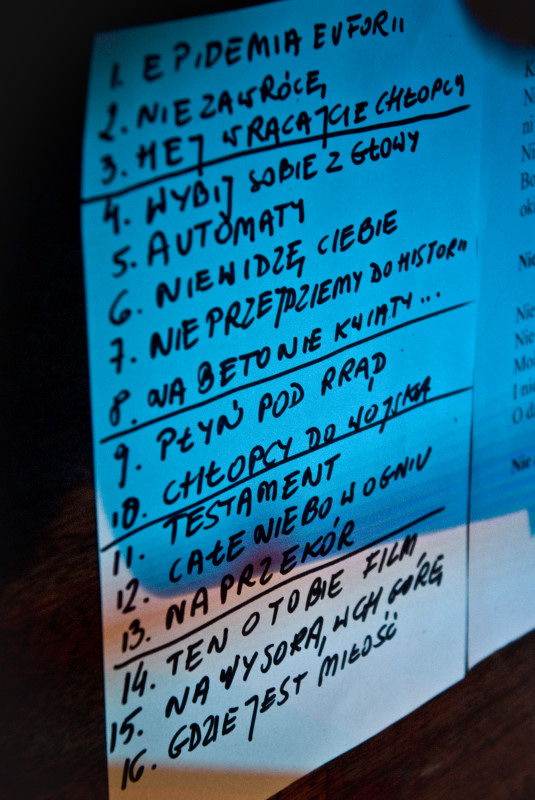 1. EPIDEMIA EUFORII
2. NIE ZAWRÓCĘ
3. HEJ WRACAJCIE CHŁOPCY
4. WYBIJ SOBIE Z GŁOWY
5. AUTOMATY
6. NIEWIDZĘ CIEBIE
7. NIE PRZEJDZIEMY DO HISTORII
8. NA BETONIE KWIATY...
9. PŁYŃ POD PRĄD
10. CHŁOPCY DO WOJSKA
11. TESTAMENT
12. CAŁE NIEBO W OGNIU
13. NA PRZEKÓR
14. TEN O TOBIE FILM
15. NA WYSORĄ, WCH GÓRĘ
16. GDZIE JEST MIŁOŚĆ
K
N
ni
Ni
Bo
ok
Nie
Nie
Nie
Moż
I ni
O d
Nie